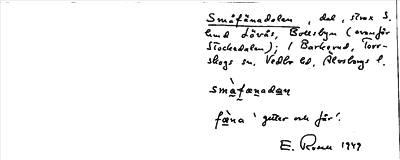 Småfänadalen, dal, strax S.
lund Lövås, Bottsbyn (ovanför
Stockadalen); i Barkerud, Torr-
skogs sn. Vedbo hd, Älvsborgs l.
småfænadan
fæna 'getter och får'.
E. 1949